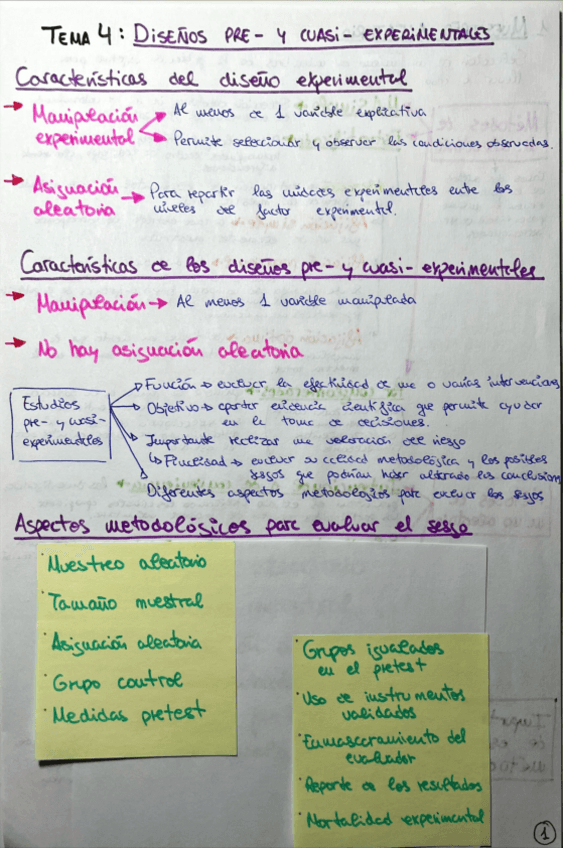 TEMA 4: DISEÑOS PRE- Y CUASI-EXPERIMENTALES
Características del diseño experimental
Manipulación experimental
Al menos de 1 variable explicativa
Permite seleccionar y observar las condiciones observadas.
Asignación aleatoria
Para repartir las unidades experimentales entre los
niveles del factor experimental.
Características de los diseños pre- y cuasi-experimentales
Manipulación → Al menos 1 variable manipulada
No hay asignación aleatoria
Estudios
pre- y cuasi-
experimentales
Función → evaluar la efectividad de una o varias intervenciones
Objetivo → aportar evidencia científica que permite ayudar
en la toma de decisiones.
Importante realizar una valoración del riesgo
↳ Finalidad → evaluar su calidad metodológica y los posibles
sesgos que podrían haber alterado las conclusion
Diferentes aspectos metodológicos para evaluar los sesgos
Aspectos metodológicos para evaluar el sesgo
· Muestreo aleatorio
· Tamaño muestral
· Asignación aleatoria
· Grupo control
· Medidas pretest
· Grupos igualados
en el pretest
· Uso de instrumentos
validados
· Enmascaramiento del
evaluador
· Reporte de los resultados
· Mortalidad experimental
1